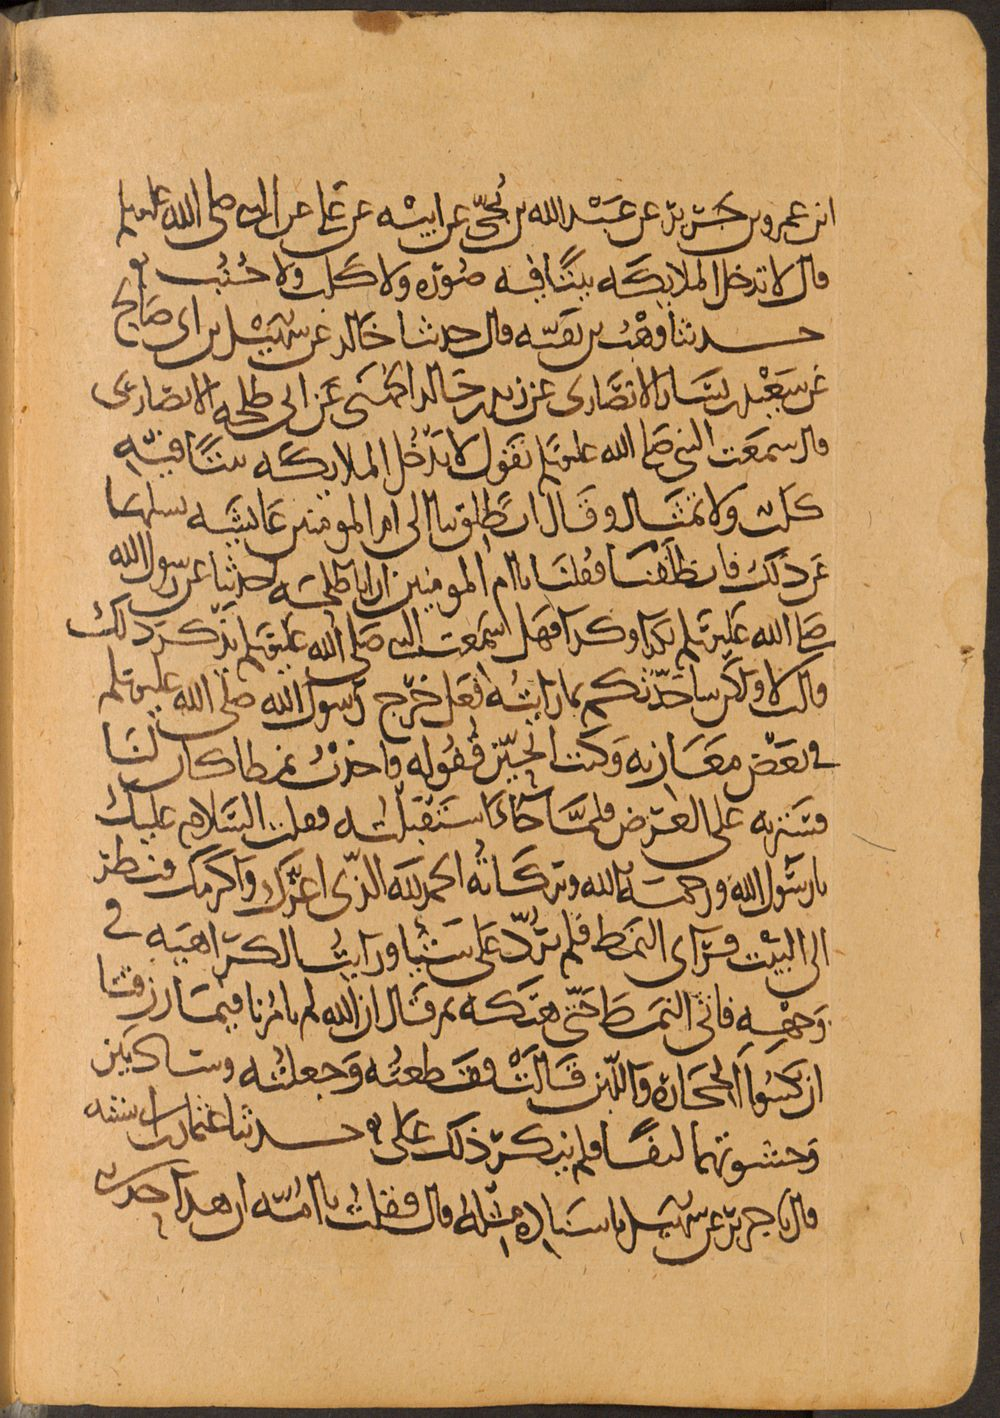 ابن عمرو بن جرير عن عبد الله بن نجي عن ابيه عن علي عن النبي صلى الله عليه وسلم
قال لا تدخل الملايكه بيتا فيه صوره ولا كلب ولا جنب
حدثنا وهب بن بقيه قال حدثنا خالد عن سهيل بن ابي صالح
عن سعيد بن يسار الانصاري عن زيد بن خالد الجهني عن ابي طلحه الانصاري
قال سمعت النبي صلى الله عليه وسلم يقول لا تدخل الملايكه بيتا فيه
كلب ولا تمثال وقال انطلق بنا الى ام المومنين عايشه نسلها
عن ذلك فانطلقنا فقلنا يا ام المومنين ان ابا طلحه حدثنا عن رسول الله
صلى الله عليه وسلم بكذا وكذا فهل سمعت النبي صلى الله عليه وسلم يذكر ذلك
قالت لا ولكن ساحدثكم بما رايته فعل خرج رسول الله صلى الله عليه وسلم
في بعض مغازيه وكنت اتحين قفوله فاخذت نمطا كان لنا
فسترته على العرض فلما جاء استقبلته فقلت السلام عليك
يا رسول الله ورحمة الله وبركاته الحمد لله الذي اعزك واكرمك فنظر
الى البيت فراى النمط فلم يرد علي شيئا ورايت الكراهيه في
وجهه فاتى النمط حتى هتكه ثم قال ان الله لم يامرنا فيما رزقنا
ان نكسوا الحجاره واللبن قالت فقطعته وجعلته وسادتين
وحشوتهما ليفا فلم ينكر ذلك علي حدثنا عثمان بن ابي شيبه
قال نا جرير عن سهيل باسناده مثله قال فقلت يا امه ان هذا حدثني